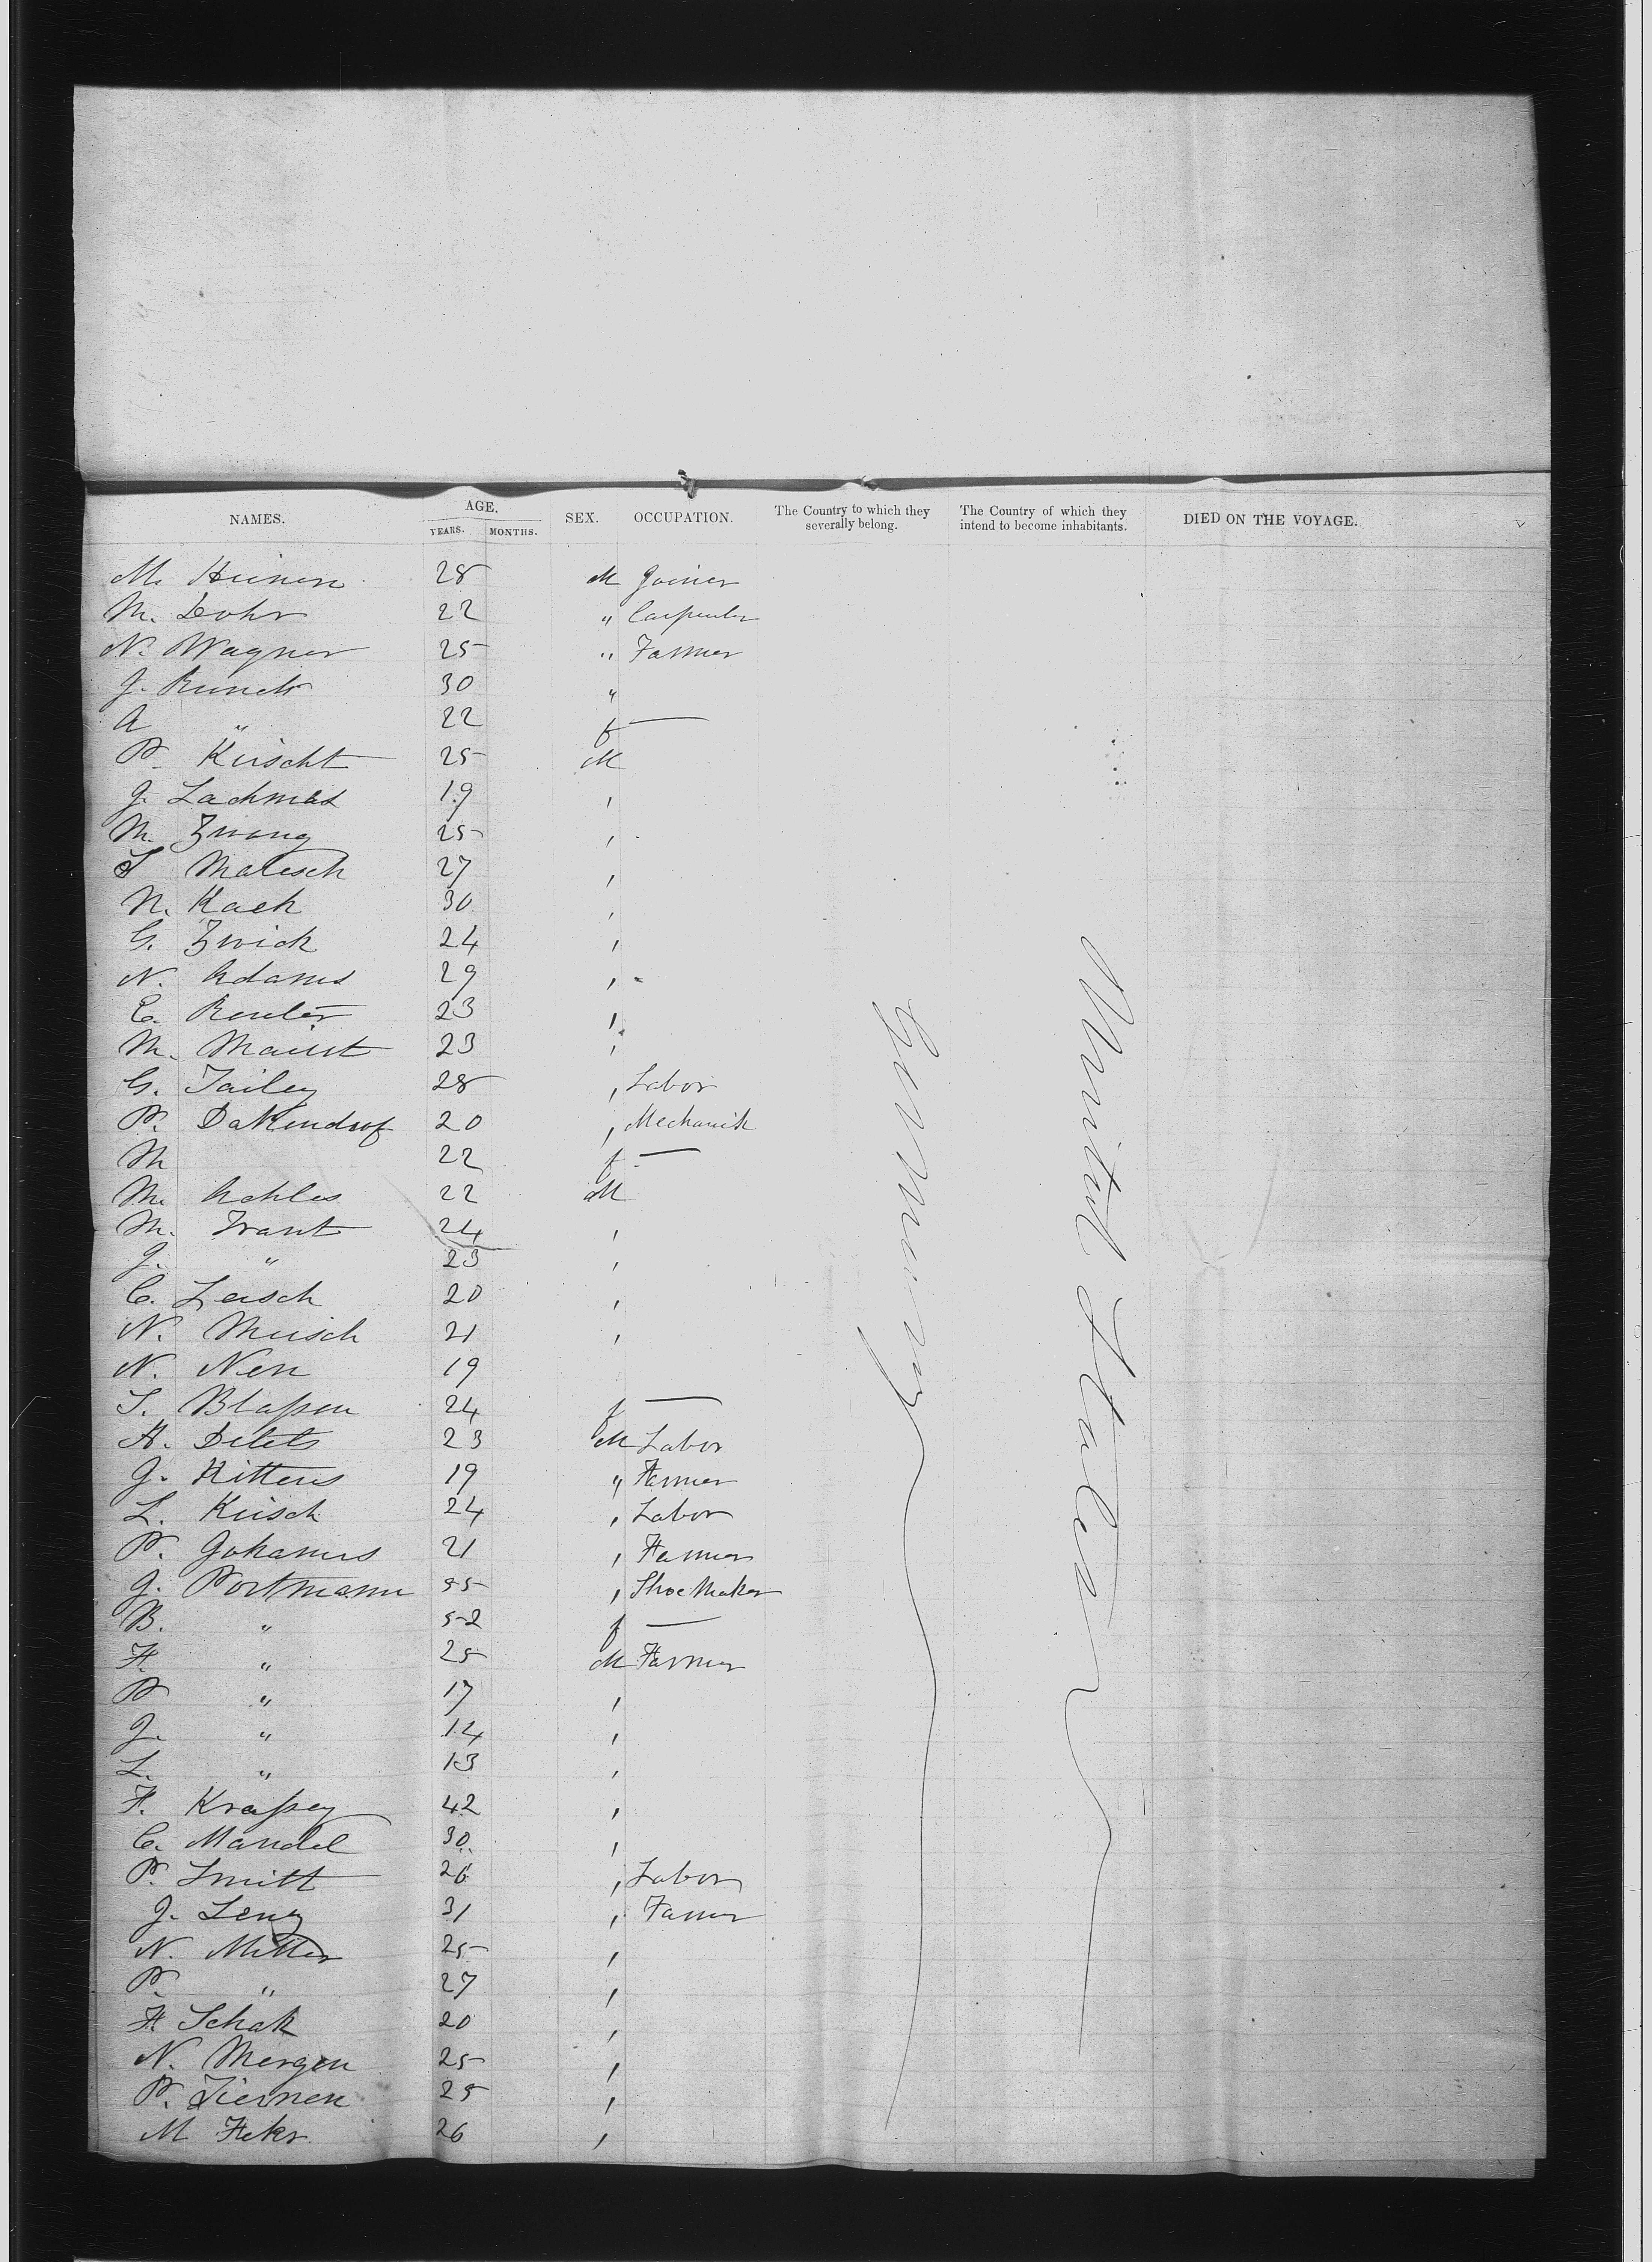 NAMES. AGE. SEX. OCCUPATION. The Country to which they severally belong. The Country of which they intend to become inhabitants. DIED ON THE VOYAGE.
YEARS. MONTHS.
M. Heinen 28 M Joiner
M. Dohr 22 " Carpenter
N. Wagner 25 " Farmer
J. 30 "
A " 22 f —
P. Kirscht 25 M
J. Lachmas 19 ,
M. Zwang 25 ,
J Matesch 27 ,
N. Kaek 30 ,
G. Zwick 24 ,
N. Adams 29 ,
C. Reuter 23 ,
M. 23 ,
G. Tailey 28 , Labor
P. Dakendrof 20 , Mechanik
M 22 f —
M. Achles 22 M
M. Trant 24 ,
J. " 23 ,
C. Zeisch 20 ,
N. Meisch 21 ,
N. Nen 19
S. Blaßen 24 f —
A. Delets 23 M Labor
J. Kittens 19 " Farmer
L. Kirsch 24 , Labor
P. Johanns 21 , Farmer
J. Portmann 55 , ShoeMaker
B. " 52 f —
F. " 25 M Farmer
P " 17 ,
J. " 14 ,
L. " 13 ,
F. Kraßey 42 ,
C. Mandel 30 ,
P. Smitt 26 , Labor
J. Leny 31 , Farmer
N. Miller 25 ,
P. " 27 ,
F. Schak 20 ,
N. Mergen 25 ,
P. 25 ,
M Feks 26 ,
Germany
United States